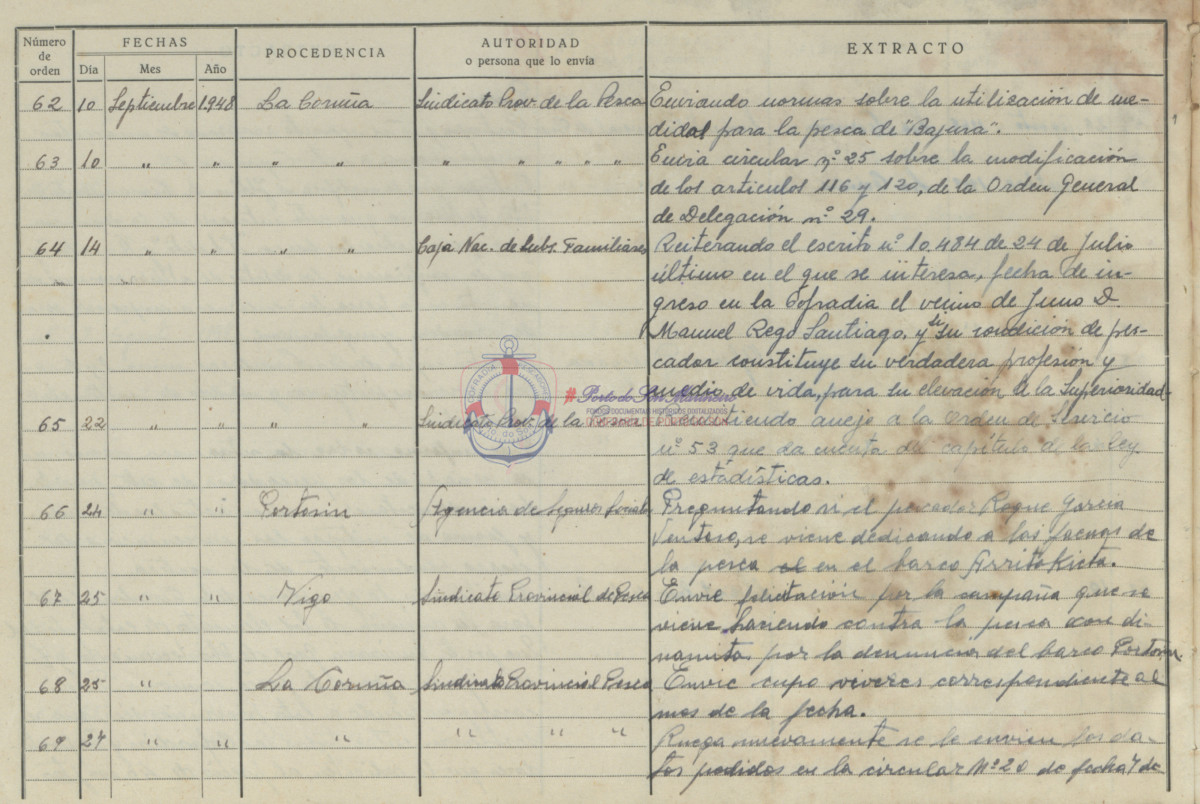 Número de orden FECHAS PROCEDENCIA AUTORIDAD EXTRACTO
Dia Mes Año o persona que lo envía
62 10 Septiembre 1948 La Coruña Sindicato Prov. de la Pesca Enviando normas sobre la utilización de me-
didas para la pesca de "Bajura".
63 10 " " " " " " " " " Envia circular nº 25 sobre la modificación
de los articulos 116 y 120, de la Orden General
de Delegación nº 29.
64 14 " " " " Caja Nac. de Subs. Familiares Reiterando el escrito nº 10.484 de 24 de Julio
último en el que se interesa, fecha de in-
greso en la Cofradia el vecino de Juno D.
Manuel Rego Santiago, y si su condición de pes-
cador constituye su verdadera profesión y
medio de vida, para su elevación a la Superioridad.
65 22 " " " " Sindicato Prov. de la Pesca Remitiendo anejo a la Orden de Servicio
nº 53 que da cuenta del capítulo de la ley
de estadísticas.
66 24 " " Portosin Agencia de Seguros Sociales Preguntando si el pescador Roque Garcia
se viene dedicando a las faenas de
la pesca en el barco Arritokieta.
67 25 " " Vigo Sindicato Provincial de Pesca Envie felicitación por la campaña que se
viene haciendo contra la pesca con di-
namita por la denuncia del barco Portosin
68 25 " La Coruña Sindicato Provincial Pesca Envie cupo viveres correspondiente al
mes de la fecha.
69 27 " " " " " " Ruega nuevamente se le envien los da-
tos pedidos en la circular Nº 20 de fecha 7 de
COFRADÍA PESCADORES
Porto do Son
#Porto do Son Marinheiro
FONDOS DOCUMENTAIS HISTÓRICOS DIXITALIZADOS